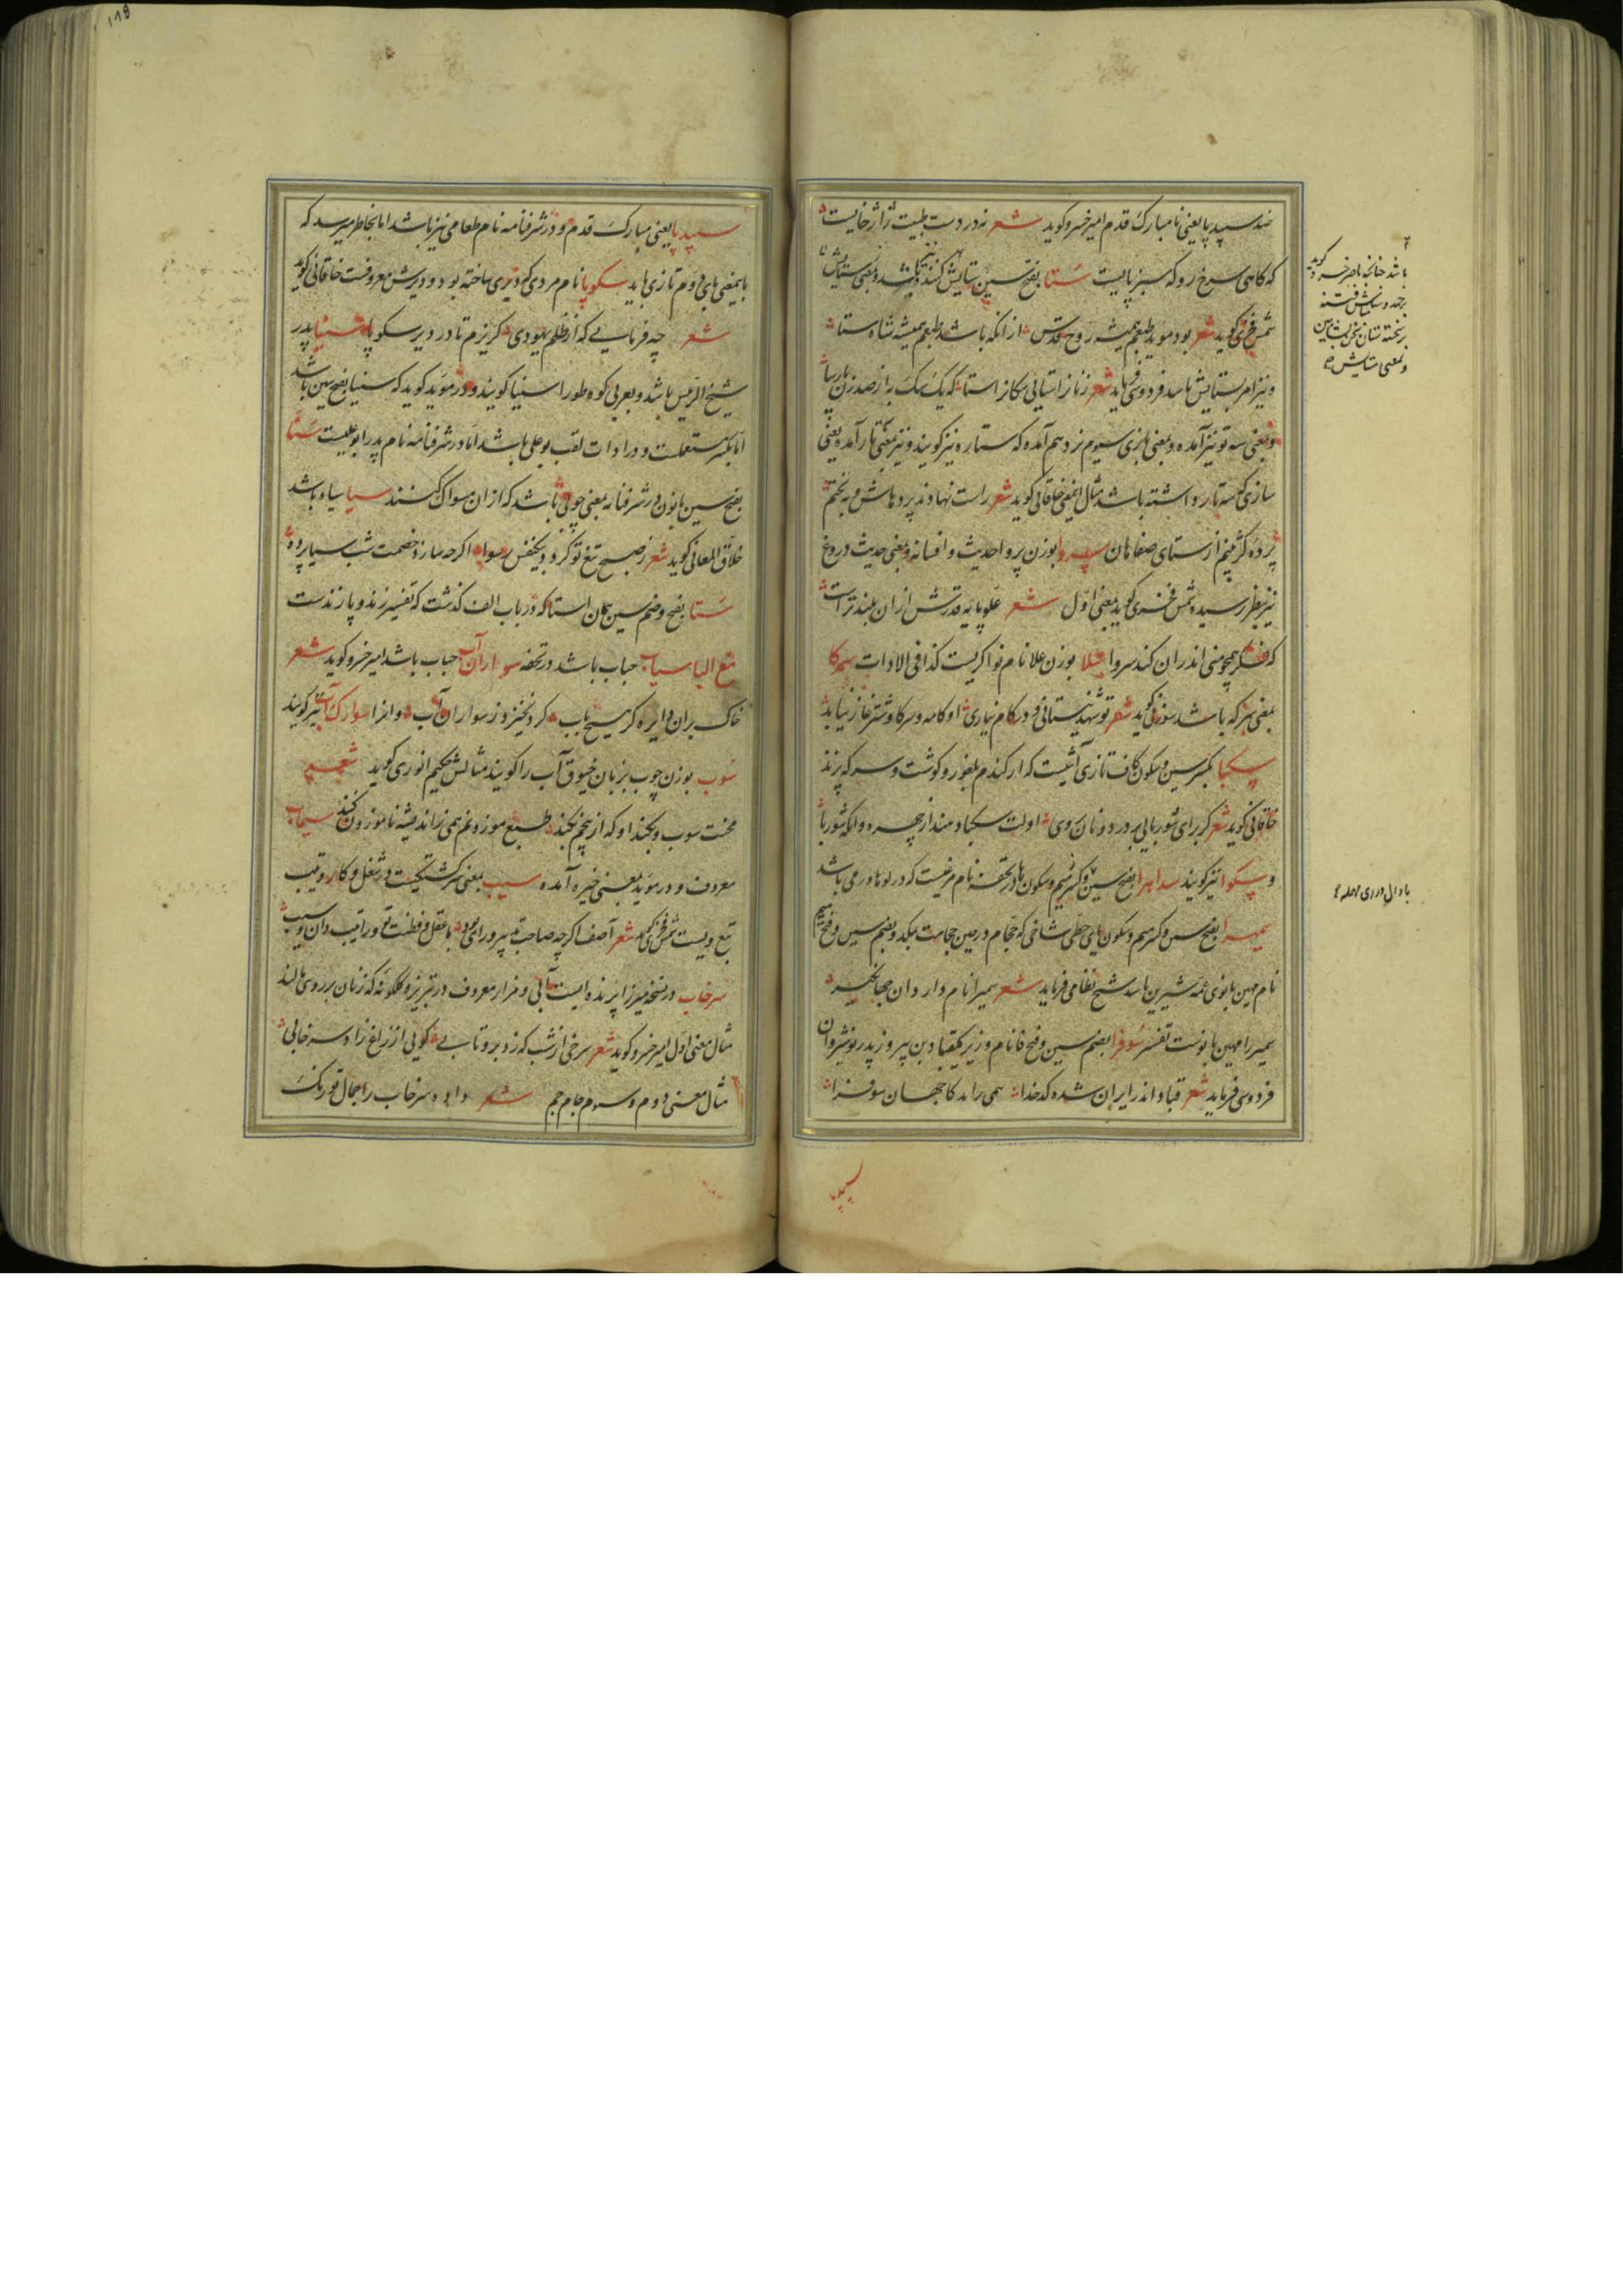 ضد سپید پا یعنی نامبارک قدم امیر خسرو کوید شعر نه در دست طبیت ژاژ خایست
که کاهی سرخ رو که سبز پایست ستا بفتح سین ستایش کننده باشد و بمعنی ستایش
شمس فخری کوید شعر بود موید طبعم همیشه روح قدس از انکه باشد طبعم همیشه شاه ستا
و نیز امر بستایش باشد فردوسی فرماید شعر زنانرا ستایی سکانرا ستا که یک سک به از صد زن پارسا
و بمعنی سه تو نیز آمده و بمعنی بازی سیوم نرد هم آمده که ستاره نیز کویند و نیز بمعنی تار آمده یعنی
سازی که سه تار داشته باشد مثال این معنی خاقانی کوید شعر راست نهاوند پرده باش و به بختم
پرده کژ بینم از ستای صفاهان سروا بوزن پروا حدیث و افسانه و بمعنی حدیث دروغ
نیز بنظر رسیده شمس فخری کوید بمعنی اول شعر علو پایه قدرش از ان بلندتر است
که فکر همچو منی اندران کند سروا سلا بوزن علا نام نواکریست کذا فی الادات سرکا
بمعنی سرکه باشد سوزنی کوید شعر
سکبا بکسر سین و سکون کاف تازی آشیست که از کندم بلغور و کوشت و سرکه پزند
خاقانی کوید شعر کز برای شوربایی بر در دونان روی اولت سکبا دهند از چهره وانکه شوربا
و سکوا نیز کویند سداهرا بفتح سین و سکون ها در تحفه نام مرغیست که در می باشد
سمیرا بفتح سین و کسر میم و سکون یای حطی شاخی که حجام در حین حجامت بمکد و بضم سین و فتح میم
نام مهین بانوی عمه شیرین باشد شیخ نظامی فرماید شعر سمیرا نام دارد ان جهانکیر
سمیرا مهین بانوست تفسیر سوفرا بضم سین و فتح فا نام وزیر کیقباد بن پیروز پدر نوشیروان
فردوسی فرماید شعر قباد اندر ایران شده کدخدا همی راند کار جهان سوفرا
باشد چنانچه ناصر خسرو کوید
و بمعنی ستایش
با دال و رای مهمله
سپید پا
۱۱۸
سپید پا یعنی مبارک قدم و در شرفنامه نام طعامی نیز باشد اما بخاطر میرسد که
باینمعنی بای دوم تازی باید سکوپا نام مردی که دیری ساخته بود و دیرش معروفست خاقانی کوید
شعر چه فرمایی که از ظلم یهودی کریزم تا در دیر سکوپا سینا پدر
شیخ الرئیس باشد و بعربی کوه طور را سینا کویند و در موید کوید که سینا بفتح سین باشد
اما بکسر مستعملست و در ادات لقب بوعلی باشد اما در شرفنامه نام پدر ابو علیست سنا
بفتح سین با نون در شرفنامه بمعنی چوبی باشد که از ان سواک کنند سیا سیاه باشد
خلاق المعانی کوید شعر ز صبح تیغ تو کردد بیکنفس رسوا اکرچه سازد خصمت شب سیا پرده
ستا بفتح و ضم سین همان استا که در باب الف کذشت که تفسیر زند و پازندست
مع البا سیاب حباب باشد در تحفه سواران آب حباب باشد امیر خسرو کوید شعر
خاک بران دایره کر هیچ باب کرد نخیزد ز سواران آب و انرا سوارک آب نیز کویند
سوب بوزن چوب بزبان خیوق آب را کویند مثالش حکیم انوری کوید شعر
معروف و در موید بمعنی خیره آمده سیب بمعنی سرکشتکیست در شغل و کار و تیب
تبع ویست شمس فخری کوید شعر آصف اکرچه صاحب تدبیر و رای بود با عقل و فطنت تو ورا تیب دان و سیب
سرخاب در نسخه میرزا پرنده ایست آبی و مزار معروف در تبریز و کلکونه که زنان بر روی مالند
مثال معنی اول امیر خسرو کوید شعر سرخی از شب که زد برو تابی کویی از زاغ زاد سرخابی
مثال معنی دوم و سیوم جام جم شعر داده سرخاب را جمال تو رنک